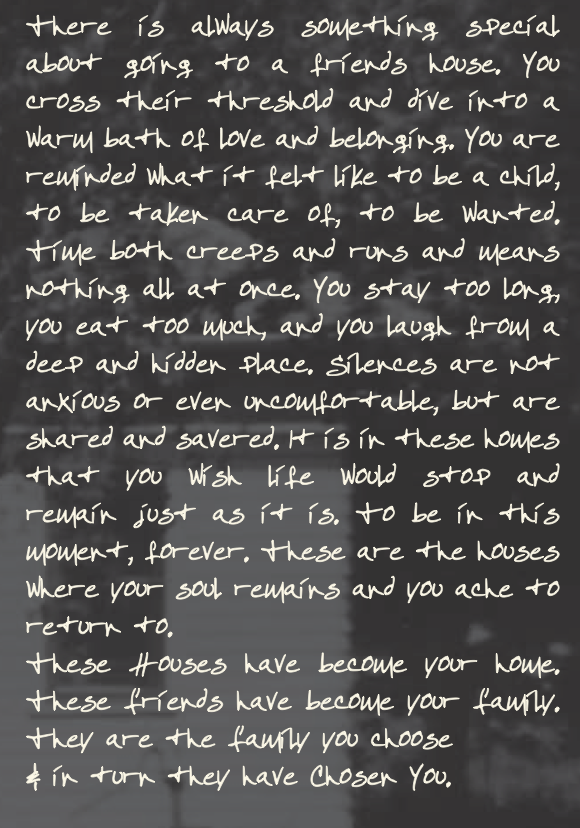 there is always something special
about going to a friends house. You
cross their threshold and dive into a
warm bath of love and belonging. You are
reminded what it felt like to be a child,
to be taken care of, to be wanted.
Time both creeps and runs and means
nothing all at once. You stay too long,
you eat too much, and you laugh from a
deep and hidden place. Silences are not
anxious or even uncomfortable, but are
shared and savered. It is in these homes
that you wish life would stop and
remain just as it is. To be in this
moment, forever. These are the houses
where your soul remains and you ache to
return to.
These Houses have become your home.
These friends have become your family.
They are the family you choose
& in turn they have Chosen You.